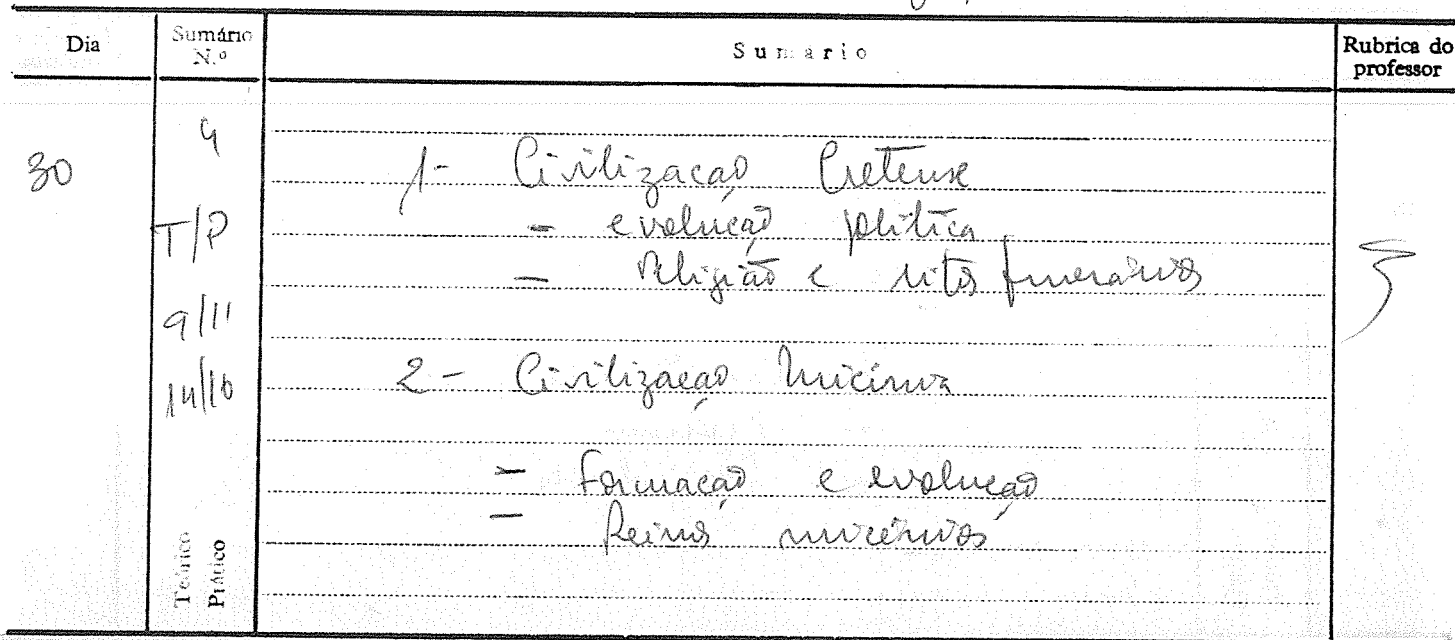 Dia
Sumário N.º
Sumario
Rubrica do professor
30
4
T/P
9/11
14/16
1- Civilização Cretense
- evolução política
- Religião e ritos funerários
2- Civilização Micénica
- Formação e evolução
- Reinos micénicos
Teórico
Prático